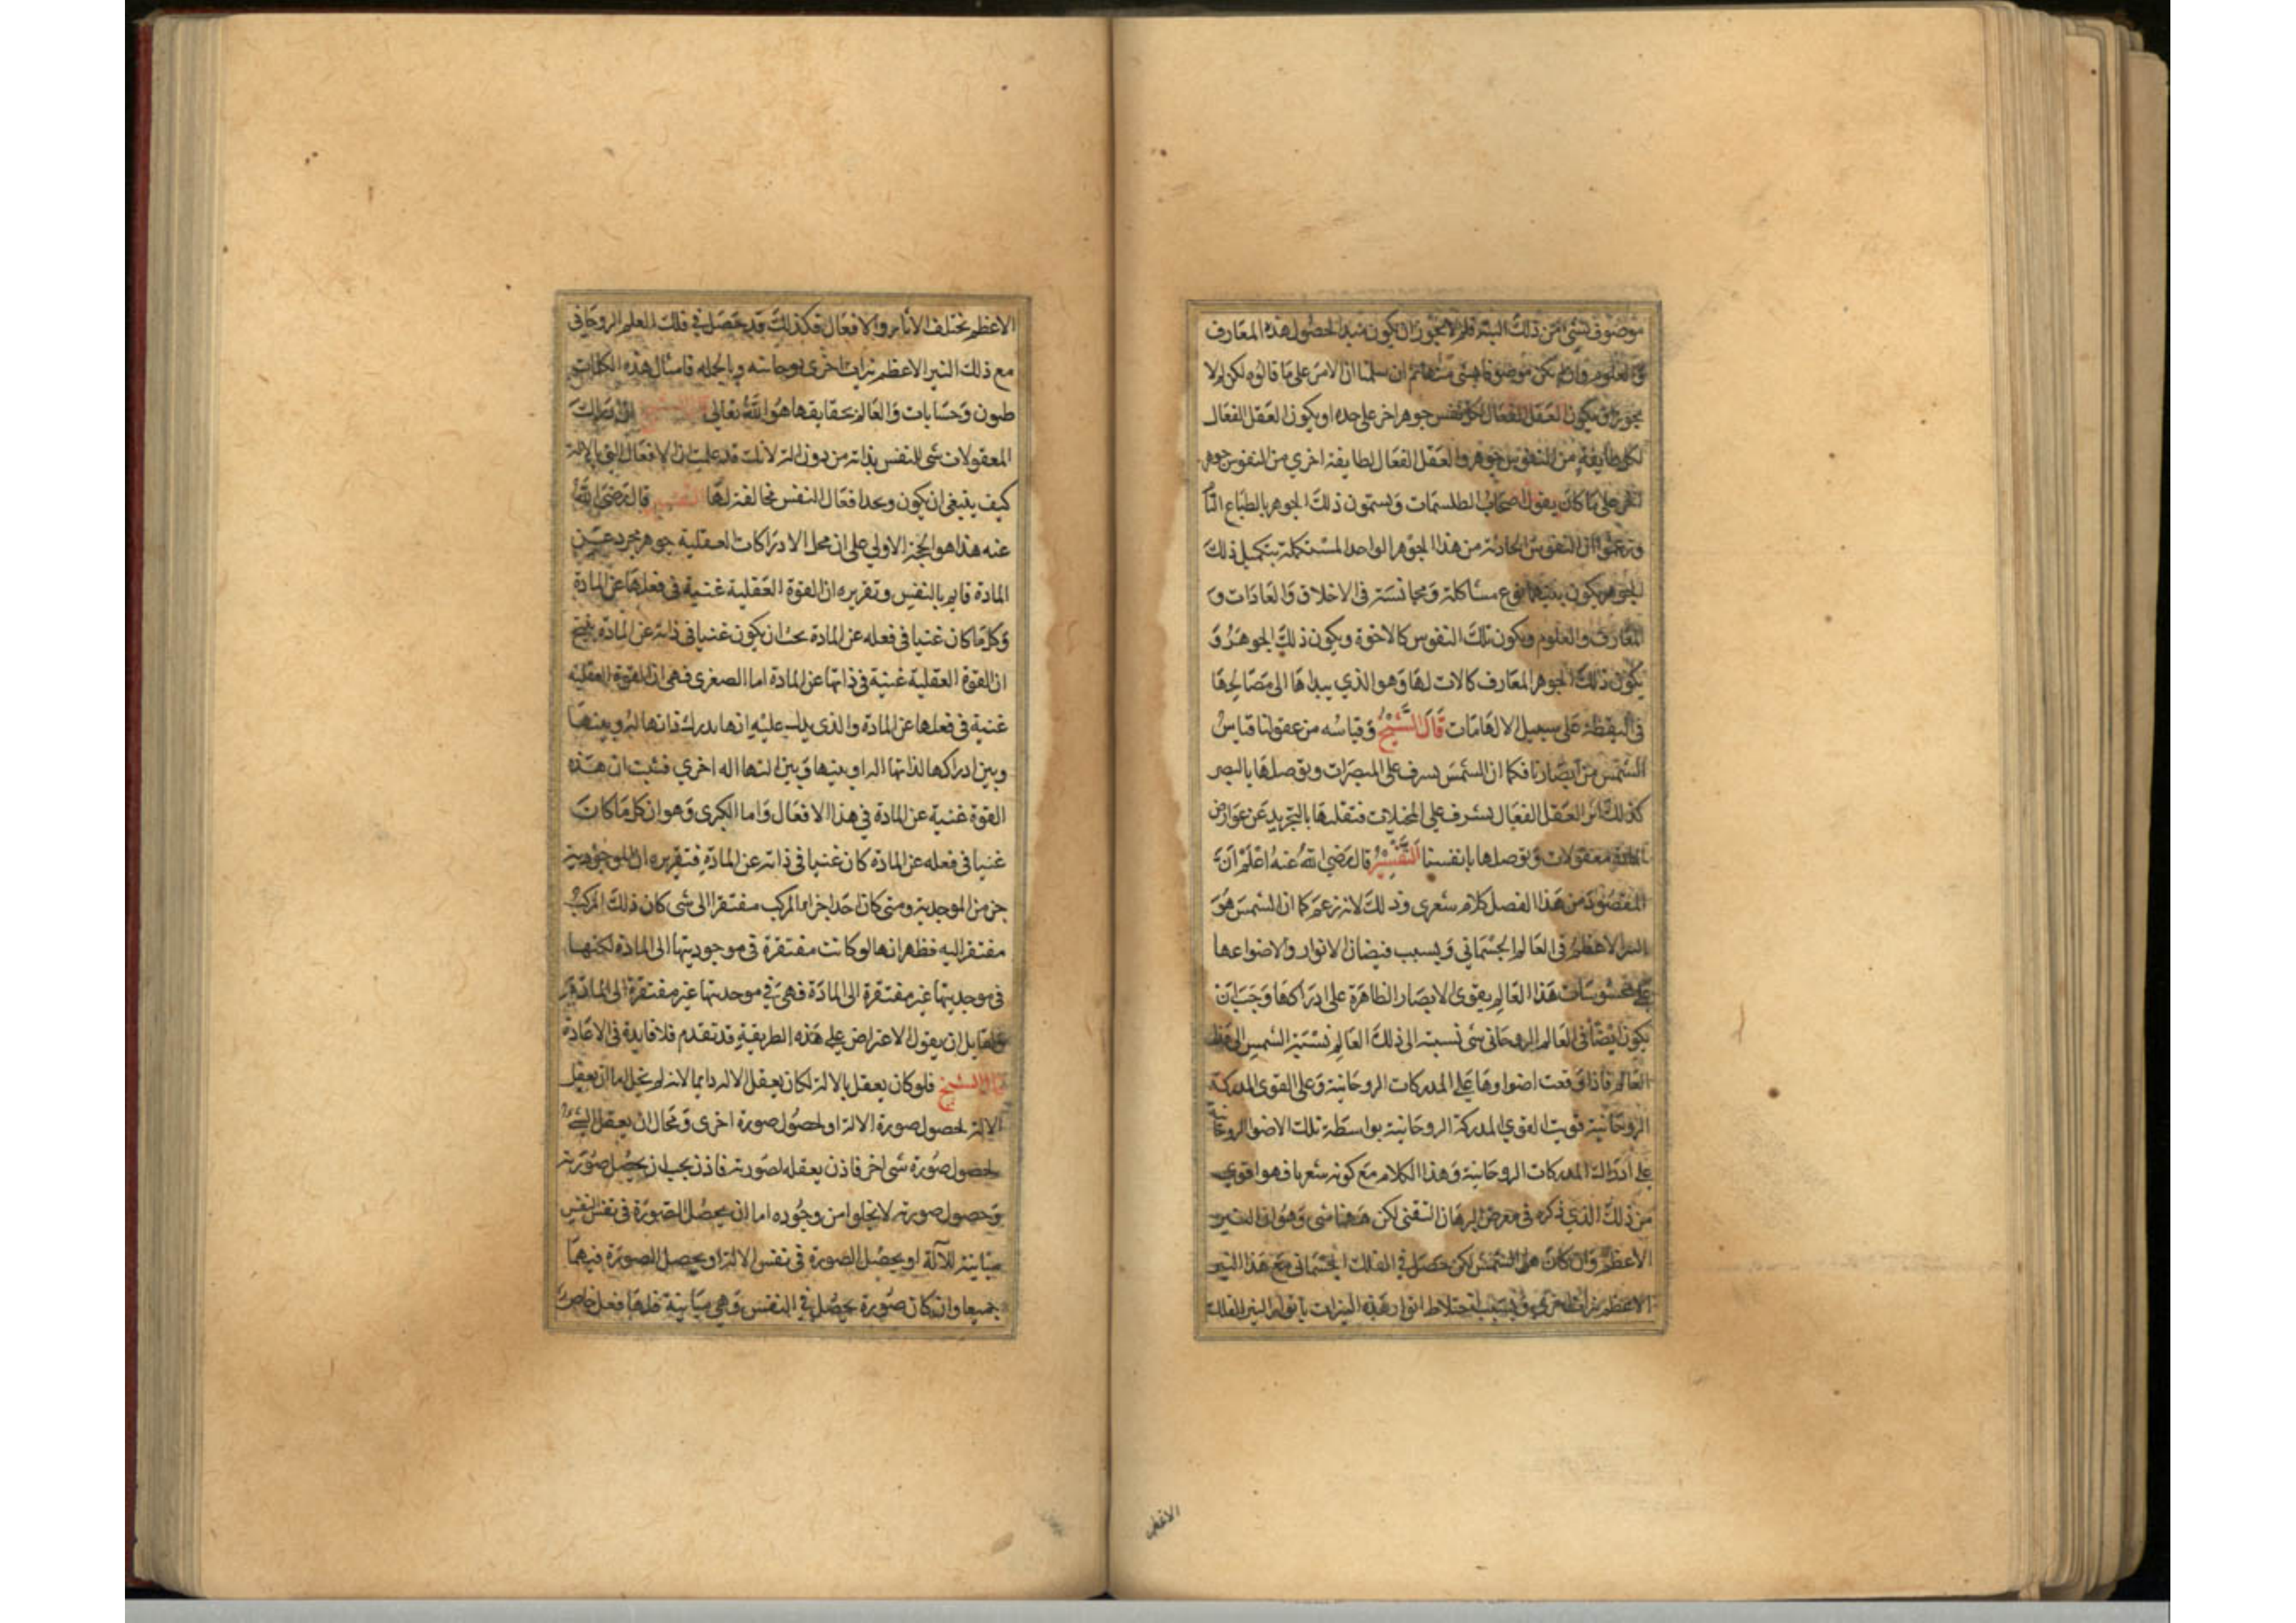 موصوف بشئ من ذلك البتة فلم لا يجوز ان يكون مبدا لحصول هذه المعارف
والعلوم وان لم يكن موصوفا بشئ منها ثم ان سلمنا ان الامر على ما قالوه لكن لم لا
يجوز ان يكون العقل الفعال لكل نفس جوهر اخر على حده او يكون العقل الفعال
لكل طايفة من النفوس جوهر والعقل الفعال لطايفة اخري من النفوس جوهر
اخر على ما كان يقول اصحاب الطلسمات ويسمون ذلك الجوهر بالطباع التا
وزعموا ان النفوس الحادثة من هذا الجوهر الواحد المستكملة بتكميل ذلك
الجوهر يكون بينها نوع مشاكلة ومجانسة في الاخلاق والعادات و
المعارف والعلوم ويكون تلك النفوس كالاخوة ويكون ذلك الجوهر و
يكون ذلك الجوهر المعارف كالات لها وهو الذي يبداها الى مصالحها
في اليقظة على سبيل الالهامات قال الشيخ وقياسه من عقولنا قياس
الشمس من ابصارنا فكما ان الشمس يسرف على المبصرات وتوصلها بالبصر
كذلك اثر العقل الفعال يشرف علي المخيلات فتقلبها بالتجريد عن عوارض
المادة معقولات وتوصلها بانفسنا التفسير قال رضي الله عنه اعلم ان
المقصود من هذا الفصل كلام شعري وذلك لانه زعم كما ان الشمس هو
النير الاعظم في العالم الجسماني وبسبب فيضان الانوار والاضواء عها
على محسوسات هذا العالم يقوى الابصار الظاهرة على ادراكها وجب ان
يكون ايضا في العالم الروحاني شي نسبته الى ذلك العالم نسبة الشمس الى هذا
العالم فاذا وقعت اضواوها على المدركات الروحانية وعلى القوى المدركة
الروحانية قويت القوي المدركة الروحانية بواسطة تلك الاضوا الروحانية
على ادراك المدركات الروحانية وهذا الكلام مع كونه شعريا فهو اقوي
من ذلك الذي ذكره في معرض البرهان النفسي لكن ههنا شي وهو ان النير
الاعظم وان كان هو الشمس لكن حصل في الفلك الجسماني مع هذا النير
الاعظم نيرات اخرى وبسبب اختلاط انوار هذه النيرات بانوار النير الفلك
الاعظم
الاعظم تختلف الاثار والافعال فكذلك قد حصل في فلك العلم الروحاني
مع ذلك النير الاعظم نيرات اخرى روحانية وبالجمله فامثال هذه الكلمات
ظنون وحسابات والعالم بحقايقها هو الله تعالى قال الشيخ ان درك
المعقولات شي للنفس بذاته من دون الة لانك قد علمت ان الافعال التي بالالة
كيف ينبغي ان يكون ونجد افعال النفس مخالفة لها التفسير قال رضي الله
عنه هذا هو الحجة الاولي على ان محل الادراكات العقلية جوهر مجرد عن
المادة قايم بالنفس وتقريره ان القوة العقلية غنية في فعلها عن المادة
وكل ما كان غنيا في فعله عن المادة يجب ان يكون غنيا في ذاته عن المادة ينتج
ان القوة العقلية غنية في ذاتها عن المادة اما الصغرى فهي ان القوة العقلية
غنية في فعلها عن المادة والذي يدل عليه انها يدرك ذاتها ليس بينها
وبين ادراكها لذاتها اله او بينها وبين التها اله اخري فثبت ان هذه
القوة غنية عن المادة في هذا الافعال واما الكبرى وهو ان كل ما كان
غنيا في فعله عن المادة كان غنيا في ذاته عن المادة فتقريره ان الموجودية
جز من الموجدية ومتى كان احد اجزا المركب مفتقرا الى شي كان ذلك المركب
مفتقرا اليه فظهر انها لو كانت مفتقرة في موجوديتها الى المادة لكنها
في موجديتها غير مفتقرة الى المادة فهي في موجديتها غير مفتقرة الى المادة
ولقايل ان يقول الاعتراض علي هذه الطريقة قد تقدم فلا فايدة في الاعادة
قال الشيخ فلو كان يعقل بالالة لكان يعقل الاله دايما لانه لم يخل اما ان يعقل
الالة لحصول صورة الالة او لحصول صورة اخرى ومحال ان يعقل الشئ
لحصول صورة شي اخر فاذن يعقله لصورته فاذن يجب ان يحصل صورته
وحصول صورته لا يخلوا من وجوده اما ان يحصل الصورة في نفس النفس
مباينة للآلة او يحصل الصورة في نفس الالة او يحصل الصورة فيهما
جميعا وان كان صورة يحصل في النفس وهي مباينة فلها فعل خاص